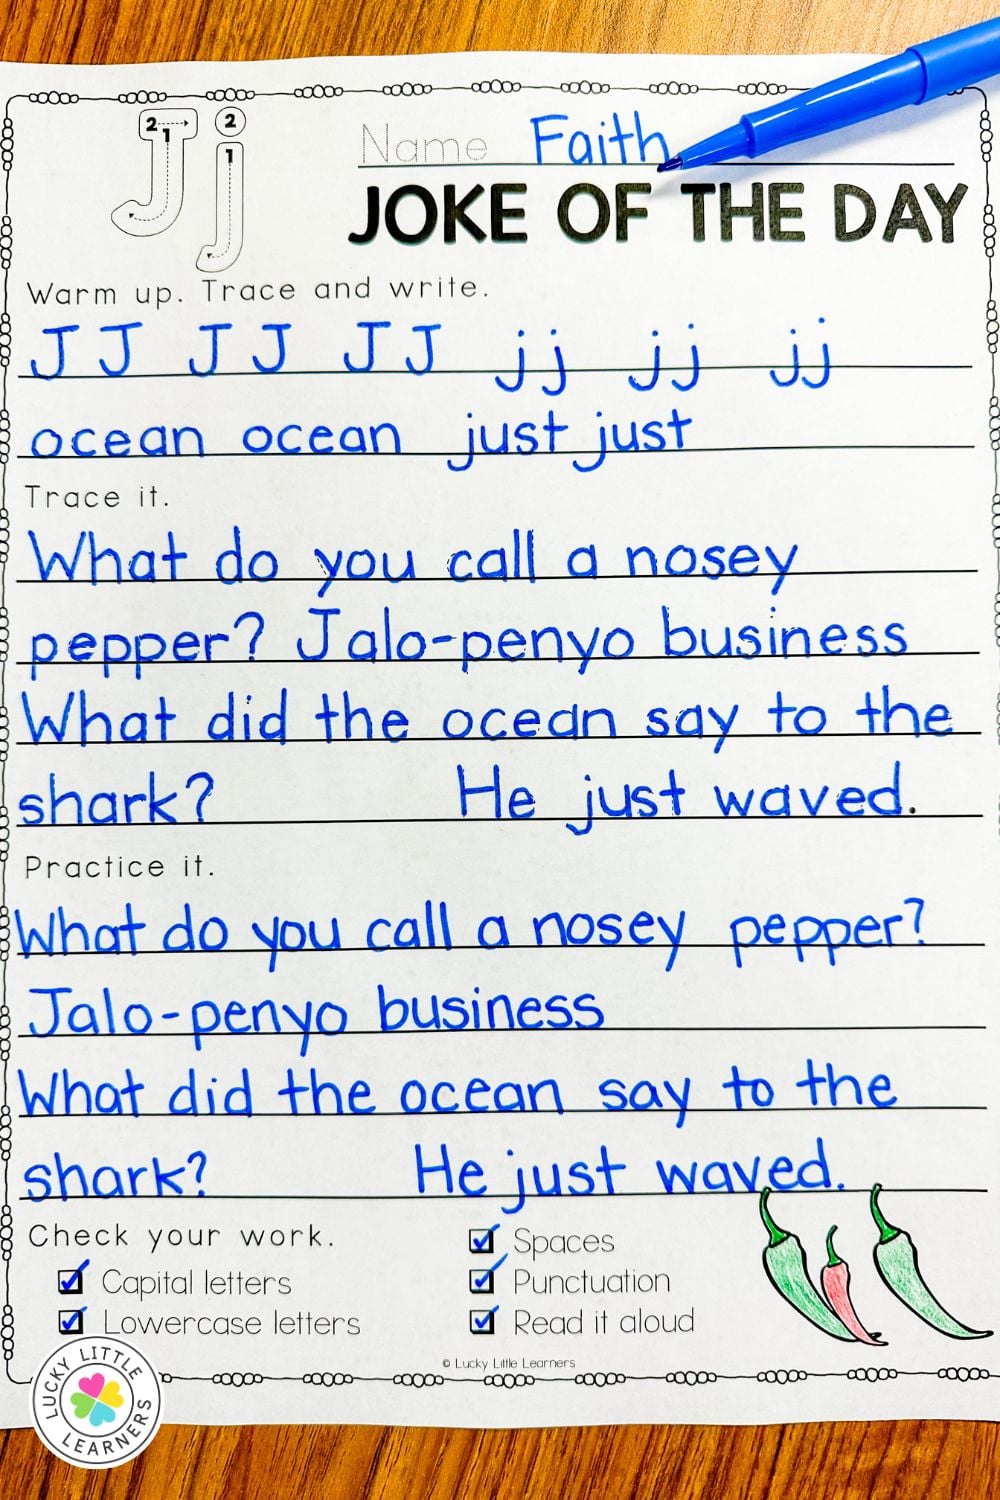 2 1 2 1
Name Faith
JOKE OF THE DAY
Warm up. Trace and write.
J J J J J J j j j j j j
ocean ocean just just
Trace it.
What do you call a nosey
pepper? Jalo-penyo business
What did the ocean say to the
shark? He just waved.
Practice it.
What do you call a nosey pepper?
Jalo-penyo business
What did the ocean say to the
shark? He just waved.
Check your work.
Capital letters
Lowercase letters
Spaces
Punctuation
Read it aloud
© Lucky Little Learners
LUCKY LITTLE LEARNERS